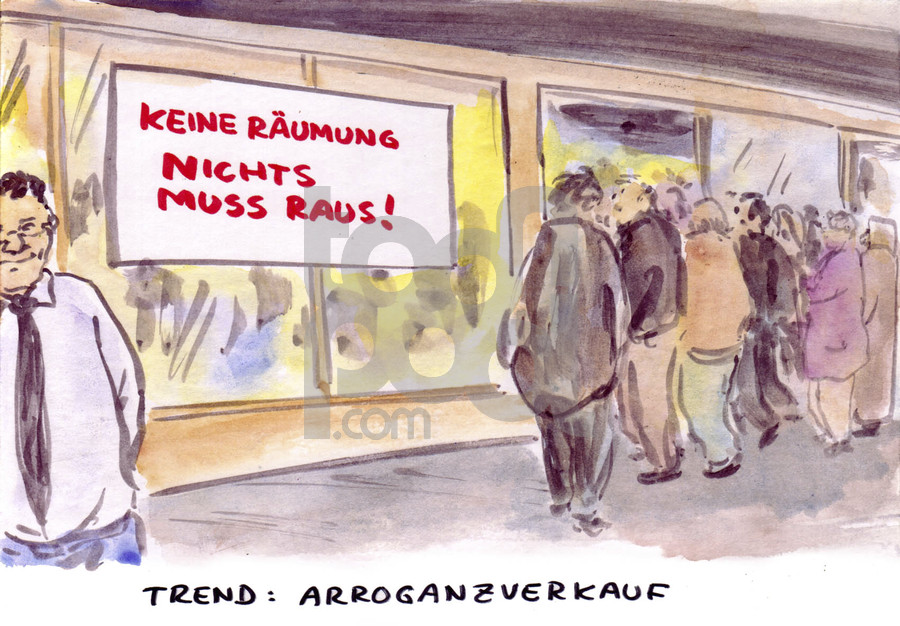 KEINE RÄUMUNG
NICHTS
MUSS RAUS!
toon
pool
.com
TREND: ARROGANZVERKAUF